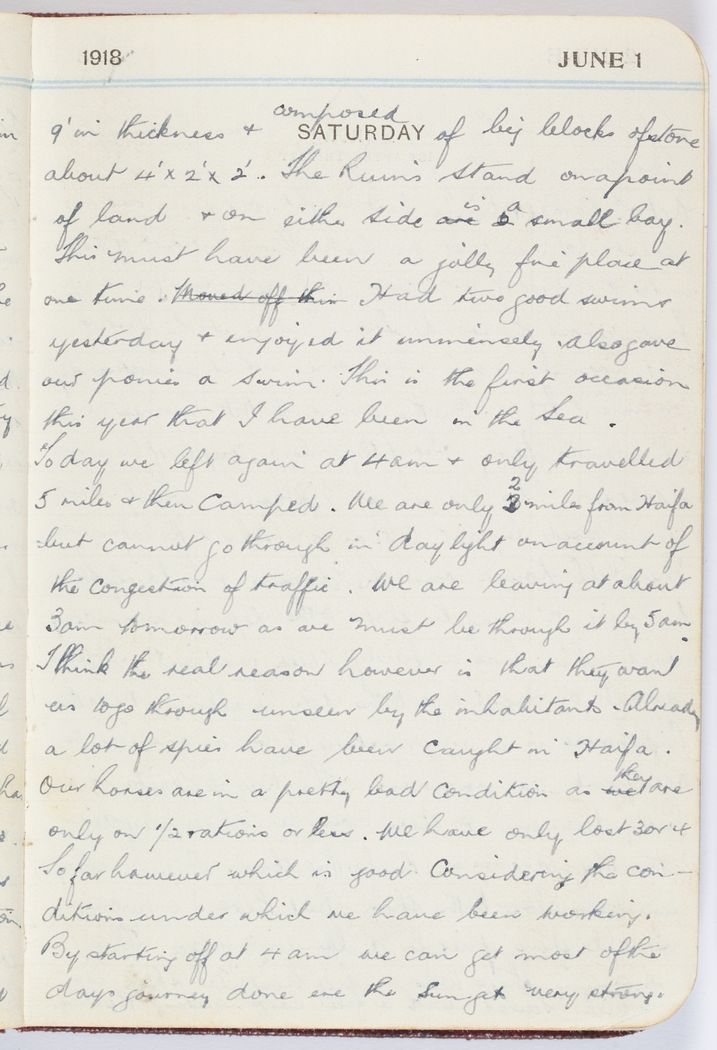 1918 JUNE 1
composed
9' in thickness + SATURDAY of big blocks of stone
about 4' x 2' x 2'. The Ruins stand on a point
of land + on either side are is a small bay.
This must have been a jolly fine place at
one time. Moved off this Had two good swims
yesterday + enjoyed it immensely. Also gave
our ponies a swim. This is the first occasion
this year that I have been in the Sea.
Today we left again at 4am + only travelled
5 miles + then Camped. We are only 2 miles from Haifa
but cannot go through in daylight on account of
the congestion of traffic. We are leaving at about
3am tomorrow as we must be through it by 5am.
I think the real reason however is that they want
us to go through unseen by the inhabitants. Already
a lot of spies have been caught in Haifa.
Our horses are in a pretty bad condition as we they are
only on 1/2 rations or less. We have only lost 3 or 4
So far however which is good Considering the con-
ditions under which we have been working.
By starting off at 4 am we can get most of the
days journey done ere the Sun gets very strong.